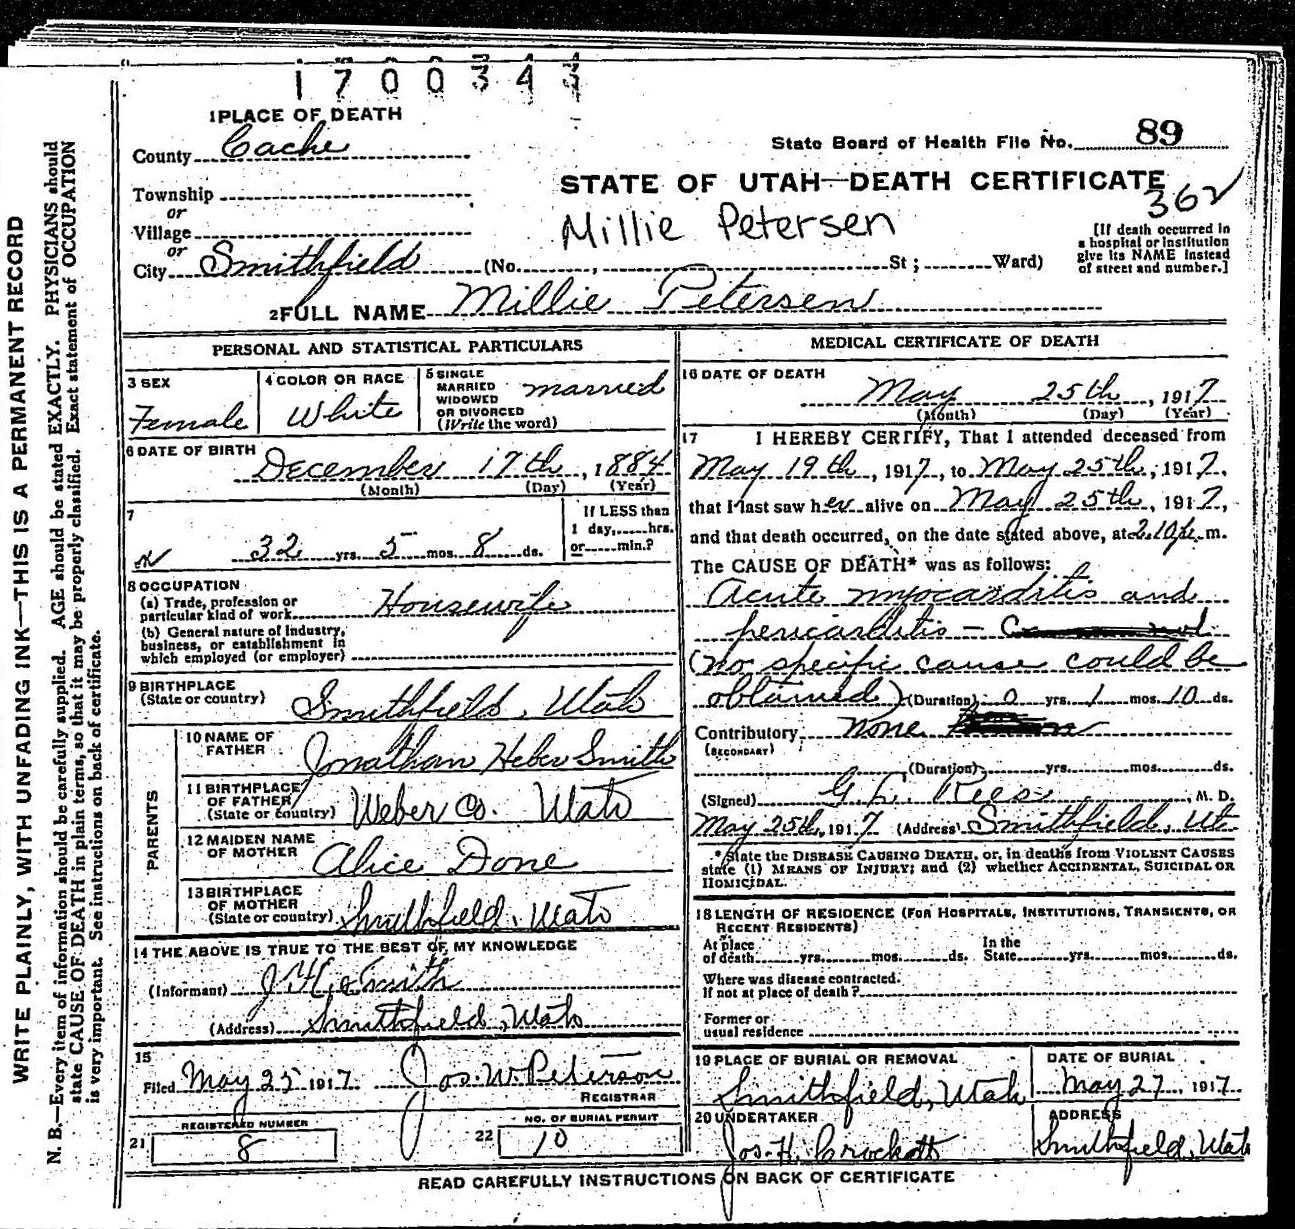 1700343
1 PLACE OF DEATH
County Cache
State Board of Health File No. 89
Township
or
Village
or
City Smithfield (No. , St ; Ward)
STATE OF UTAH—DEATH CERTIFICATE
362
Millie Petersen
[If death occurred in
a hospital or institution
give its NAME instead
of street and number.]
2 FULL NAME Millie Petersen
PERSONAL AND STATISTICAL PARTICULARS
3 SEX
Female
4 COLOR OR RACE
White
5 SINGLE
MARRIED
WIDOWED
OR DIVORCED
(Write the word)
married
6 DATE OF BIRTH December 17th, 1884
(Month) (Day) (Year)
7
32 yrs. 5 mos. 8 ds.
If LESS than
1 day, hrs.
or min.?
8 OCCUPATION
(a) Trade, profession or
particular kind of work Housewife
(b) General nature of industry,
business, or establishment in
which employed (or employer)
9 BIRTHPLACE
(State or country) Smithfield, Utah
PARENTS
10 NAME OF
FATHER Jonathan Heber Smith
11 BIRTHPLACE
OF FATHER
(State or country) Weber Co. Utah
12 MAIDEN NAME
OF MOTHER Alice Done
13 BIRTHPLACE
OF MOTHER
(State or country) Smithfield, Utah
14 THE ABOVE IS TRUE TO THE BEST OF MY KNOWLEDGE
(Informant) J H Smith
(Address) Smithfield, Utah
15
Filed May 25 1917 Jos. W. Peterson
REGISTRAR
21 REGISTERED NUMBER
8
22 NO. OF BURIAL PERMIT
10
MEDICAL CERTIFICATE OF DEATH
16 DATE OF DEATH
May 25th, 1917
(Month) (Day) (Year)
17 I HEREBY CERTIFY, That I attended deceased from
May 19th, 1917, to May 25th, 1917,
that I last saw her alive on May 25th, 1917,
and that death occurred, on the date stated above, at 2.10 p. m.
The CAUSE OF DEATH* was as follows:
Acute myocarditis and
pericarditis –
(no specific cause could be
obtained) (Duration) 0 yrs. 1 mos. 10 ds.
Contributory none
(SECONDARY)
(Duration) yrs. mos. ds.
(Signed) G. L. Rees, M. D.
May 25th, 1917 (Address) Smithfield, Ut
* State the DISEASE CAUSING DEATH, or, in deaths from VIOLENT CAUSES
state (1) MEANS OF INJURY; and (2) whether ACCIDENTAL, SUICIDAL OR
HOMICIDAL.
18 LENGTH OF RESIDENCE (FOR HOSPITALS, INSTITUTIONS, TRANSIENTS, OR
RECENT RESIDENTS)
At place
of death yrs. mos. ds.
In the
State yrs. mos. ds.
Where was disease contracted.
If not at place of death?
Former or
usual residence
19 PLACE OF BURIAL OR REMOVAL
Smithfield, Utah
DATE OF BURIAL
May 27, 1917
20 UNDERTAKER
Jos. H. Crockett
ADDRESS
Smithfield, Utah
READ CAREFULLY INSTRUCTIONS ON BACK OF CERTIFICATE
WRITE PLAINLY, WITH UNFADING INK—THIS IS A PERMANENT RECORD
N. B.—Every item of information should be carefully supplied. AGE should be stated EXACTLY. PHYSICIANS should
state CAUSE OF DEATH in plain terms, so that it may be properly classified. Exact statement of OCCUPATION
is very important. See instructions on back of certificate.